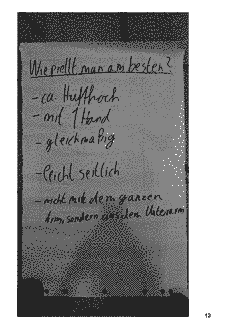 Wie prellt man am besten?
- ca. Hüfthoch
- mit 1 Hand
- gleichmäßig
- leicht seitlich
- nicht mit dem ganzen
Arm, sondern aus dem Unterarm
13